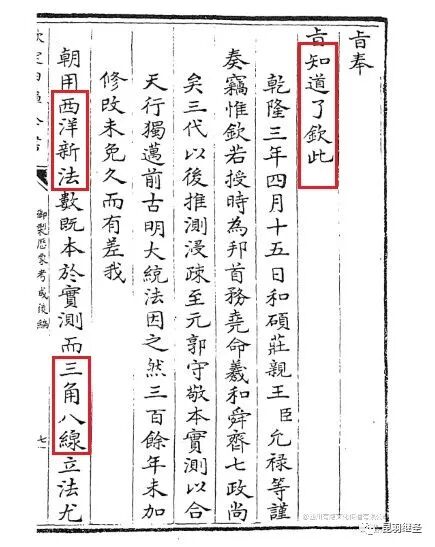 旨奉
旨知道了欽此
乾隆三年四月十五日和碩莊親王臣允禄等謹
奏竊惟欽若授時為邦首務堯命羲和舜齊七政尚
矣三代以後推測浸疎至元郭守敬本實測以合
天行獨邁前古明大統法因之然三百餘年未加
修改未免久而有差我
朝用西洋新法數既本於實測而三角八線立法尤
欽定四庫全書
御製厯象考成後編
昆羽继圣